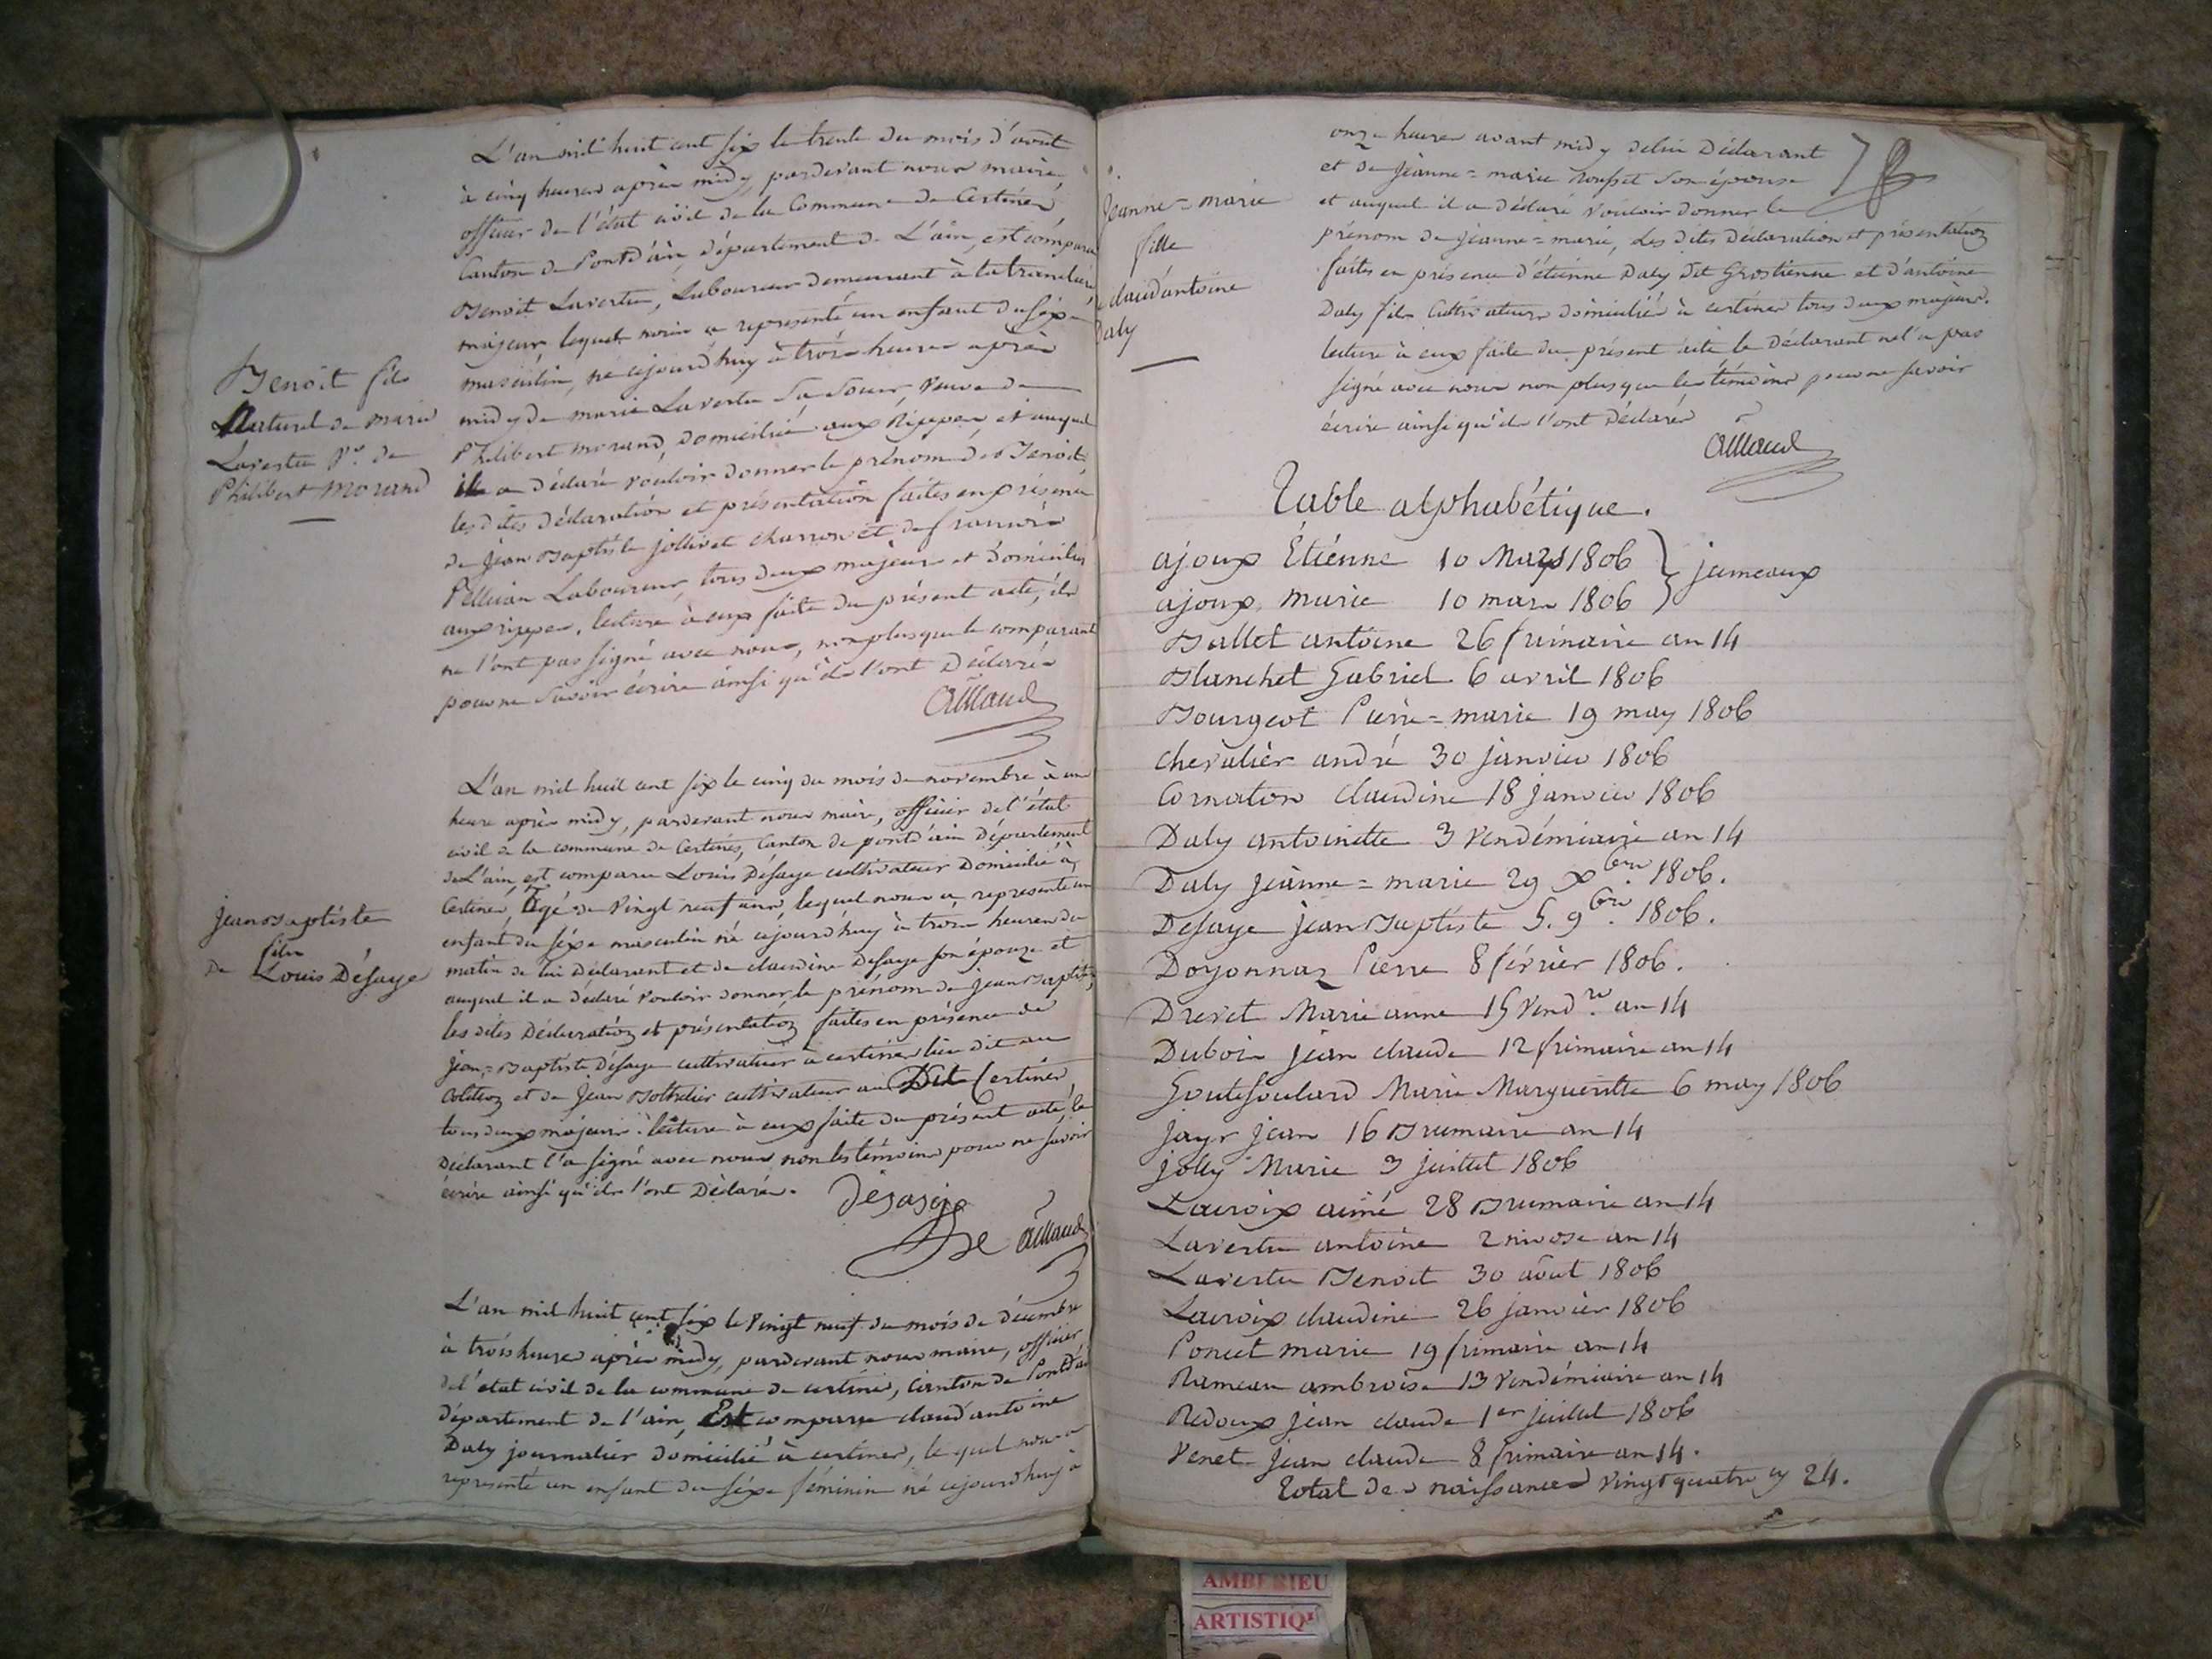 L'an mil huit cent six le trente du mois d'aout
à cinq heures après midy, pardevant nous maire
officier de l'état civil de la Commune de Certines
Canton de Pontd'ain département de L'ain, est comparu
Benoit Lavertu, Laboureur demeurant à la
majeur lequel nous a representé un enfant du séxe
masculin, né cejourd'huy à trois heures après
midy de marie Lavertu Sa Soeur, veuve de
Philibert morand, domiciliée aux Rippes et auquel
il a déclaré vouloir donner le prénom de Benoit
les dites déclaration et présentation faites en présence
de jean Baptiste jollivet charron et de francois
Pelliciaz Laboureur, tous deux majeurs et domiciliés
aux rippes, lecture à eux faite du présent acte, ils
ne l'ont pas signé avec nous, non plus que le comparant
pour ne savoir écrire ainsi qu'ils l'ont Déclarés
Benoit fils
Naturel de marie
Lavertu Ve. de
Philibert Morand
L'an mil huit cent six le cinq du mois de novembre à une
heure après midy, pardevant nous maire, officier de l'état
civil de la commune de Certines, Canton de pontd'ain Département
de L'ain, est comparu Louis Désaye cultivateur Domicilié à
Certines, Agé de vingt neuf ans, lequel nous a representé un
enfant du séxe masculin né cejourd'huy à trois heures du
matin de lui Déclarant et de claudine Desaye son épouze et
auquel il a déclaré vouloir donner le prénom de jean Baptiste,
les dites Déclaration et présentation faites en présence de
jean=Baptiste Désaye cultivateur à certines lieu dit au
et de jean Bothelier cultivateur au Dit Certines
tous deux majeurs: lecture à eux faite du présent acte, le
Déclarant l'a signé avec nous, non les témoins pour ne savoir
écrire ainsi qu'ils l'ont Déclarés.
jean Baptiste
fils
De Louis Désaye
L'an mil huit cent six le vingt neuf du mois de décembre
à trois heures après midy, pardevant nous maire, officier
de l'état civil de la commune de certines, Canton de Pontd'ain
département de l'ain, Est comparu claud'antoine
Daly journalier domicilié à certines, le quel nous a
representé un enfant du séxe féminin né cejourd'huy à
onze heures avant midy de lui Déclarant
et de jeanne=marie Rousset son épouse
et auquel il a déclaré vouloir donner le
prénom de jeanne=marie, Les dites Déclaration et présentation
faites en présence d'étienne Daly dit Grostienne et d'antoine
Daly fils Cultivateurs domiciliés à certines tous deux majeurs.
lecture à eux faite du présent acte le Déclarant ne l'a pas
signé avec nous non plus que les témoins pour ne savoir
écrire ainsi qu'ils l'ont Déclarés
Jeanne=marie
fille
claud'antoine
Daly
Table alphabétique.
ajoux Étienne 10 Mars 1806 } jumeaux
ajoux Marie 10 mars 1806
Ballet antoine 26 frimaire an 14
Blanchet Gabriel 6 avril 1806
Bourgeot Pierre=marie 19 may 1806
Chevalier andré 30 janvier 1806
Cornaton claudine 18 janvier 1806
Daly antoinette 3 vendémiaire an 14
Daly jeanne=marie 29 Xbre. 1806.
Desaye jean Baptiste 5. 9bre. 1806.
Doyonnaz Pierre 8 février 1806.
Drevet Marie anne 15 vendre. an 14
Dubois jean claude 12 frimaire an 14
Goutefoulard Marie Margueritte 6 may 1806
jayr jean 16 Brumaire an 14
jolly Marie 3 juillet 1806
Lacroix aimé 28 Brumaire an 14
Lavertu antoine 2 nivose an 14
Lavertu Benoit 30 août 1806
Lacroix claudine 26 janvier 1806
Poncet marie 19 frimaire an 14
Rameau ambroise 13 vendémiaire an 14
Redoux jean claude 1er juillet 1806
Venet jean claude 8 frimaire an 14.
Total des naissances vingt quatre cy 24.
AMBERIEU
ARTISTIQ